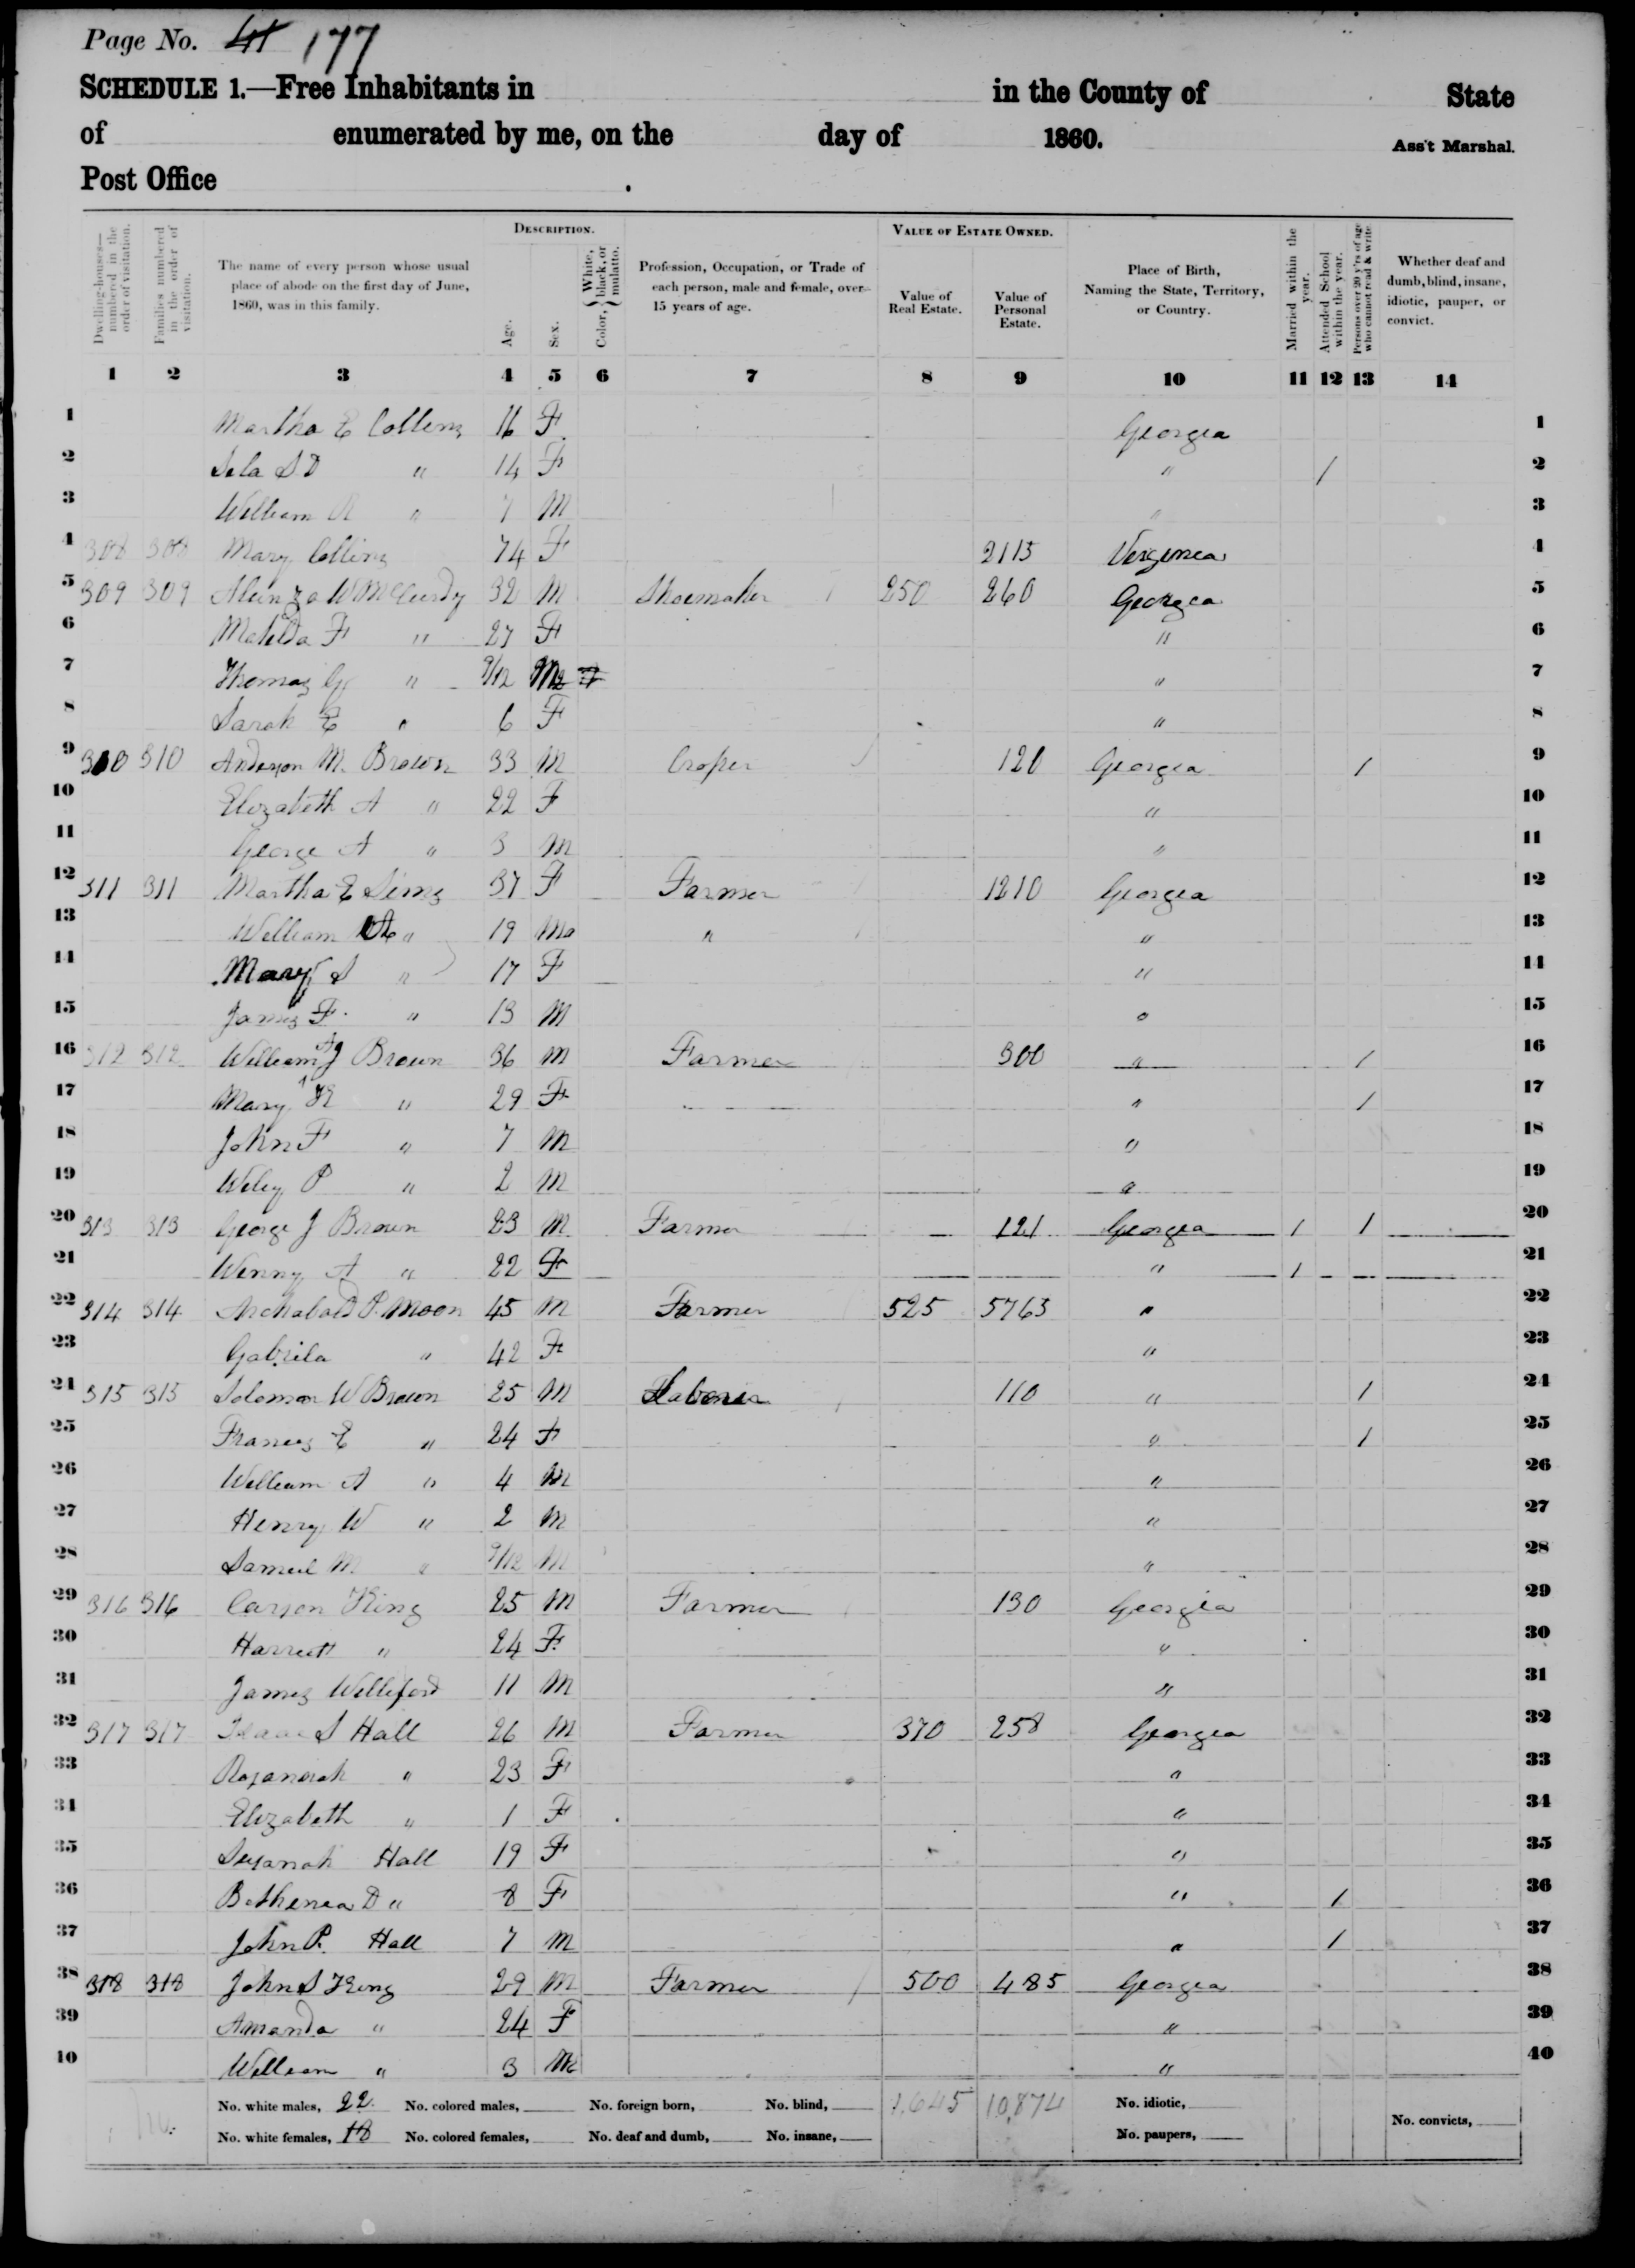 Page No. 41 177
SCHEDULE 1.—Free Inhabitants in in the County of State
of enumerated by me, on the day of 1860. Ass't Marshal.
Post Office .
Dwelling-houses—numbered in the order of visitation.
Families numbered in the order of visitation.
The name of every person whose usual place of abode on the first day of June, 1860, was in this family.
DESCRIPTION.
Age.
Sex.
Color, { White, black, or mulatto.
Profession, Occupation, or Trade of each person, male and female, over 15 years of age.
VALUE OF ESTATE OWNED.
Value of Real Estate.
Value of Personal Estate.
Place of Birth, Naming the State, Territory, or Country.
Married within the year.
Attended School within the year.
Persons over 20 y'rs of age who cannot read & write.
Whether deaf and dumb, blind, insane, idiotic, pauper, or convict.
1 2 3 4 5 6 7 8 9 10 11 12 13 14
1 Martha E Collins 16 F Georgia 1
2 Sela S D " 14 F " / 2
3 William R " 7 M " 3
4 308 308 Mary Collins 74 F 2115 Virginea 4
5 309 309 Alunza W McCurdy 32 M Shoemaker 250 260 Georgea 5
6 Matilda F " 27 F " 6
7 Thomas G " 9/12 M " 7
8 Sarah E " 6 F " 8
9 310 310 Anderson M. Brown 33 M Croper 120 Georgia / 9
10 Elizabeth A " 22 F " 10
11 George A " 3 M " 11
12 311 311 Martha E Sims 37 F Farmer 1210 Georgia 12
13 William " 19 M " " 13
14 Mary S " 17 F " 14
15 James F. " 13 M " 15
16 312 312 William A J Brown 36 M Farmer 300 " / 16
17 Mary " 29 F " / 17
18 John F " 7 M " 18
19 Wiley P " 2 M " 19
20 313 313 George J Brown 23 M Farmer 121 Georgia / / 20
21 Winny A " 22 F " / 21
22 314 314 Archabald P. Moon 45 M Farmer 525 5763 " 22
23 Gabrila " 42 F " 23
24 315 315 Solomon W Brown 25 M Laborer 110 " / 24
25 Frances E " 24 F " / 25
26 William A " 4 M " 26
27 Henry W " 2 M " 27
28 Samuel M " 9/12 M " 28
29 316 316 Carson King 25 M Farmer 130 Georgia 29
30 Harriett " 24 F " 30
31 James Williford 11 M " 31
32 317 317 Isaac S Hall 26 M Farmer 370 258 Georgia 32
33 Rosanah " 23 F " 33
34 Elizabeth " 1 F " 34
35 Susanah Hall 19 F " 35
36 Bethenea D " 8 F " / 36
37 John P. Hall 7 M " / 37
38 318 318 John S King 29 M Farmer 500 485 Georgea 38
39 Amanda " 24 F " 39
40 William " 3 M " 40
No. white males, 22 No. colored males, No. foreign born, No. blind, 1,645 10,874 No. idiotic,
No. white females, 18 No. colored females, No. deaf and dumb, No. insane, No. paupers, No. convicts,